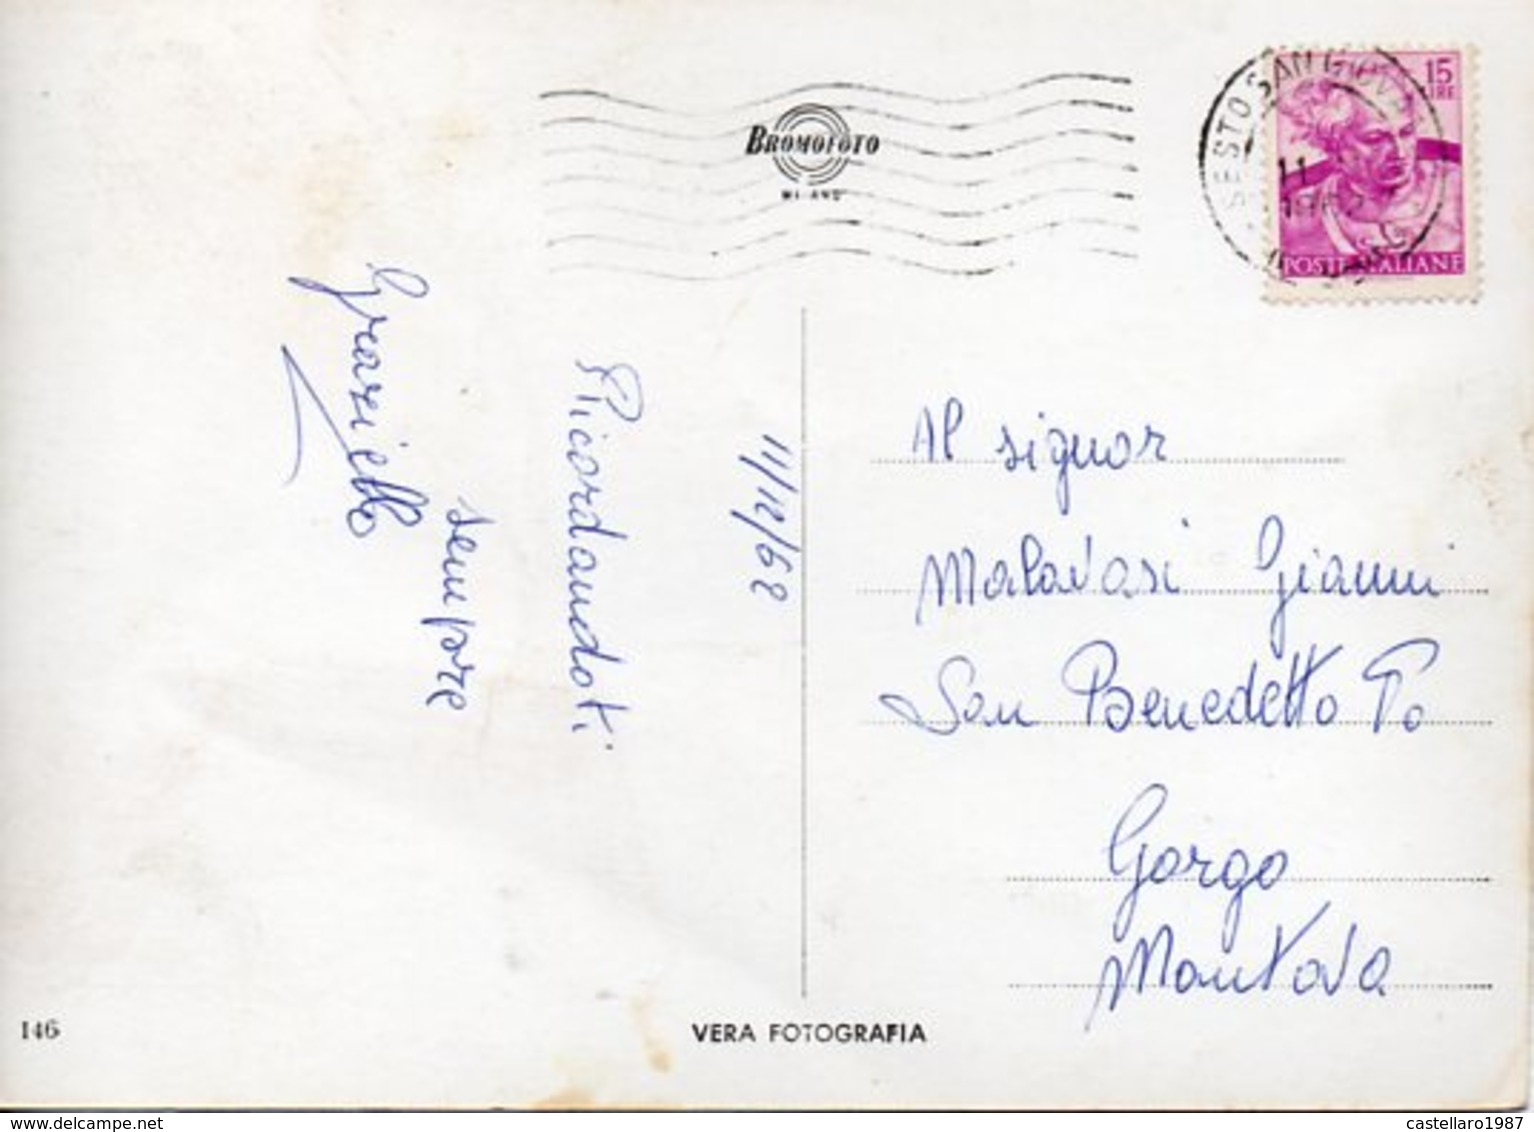 BROMOFOTO
MILANO
SESTO SAN GIOVA
11
15
LIRE
POSTE ITALIANE
11/12/62
Ricordandoti
sempre
Graziella
Al signor
Malavasi Gianni
San Benedetto Po
Gorgo
Mantova
146
VERA FOTOGRAFIA
www.delcampe.net
castellaro1987